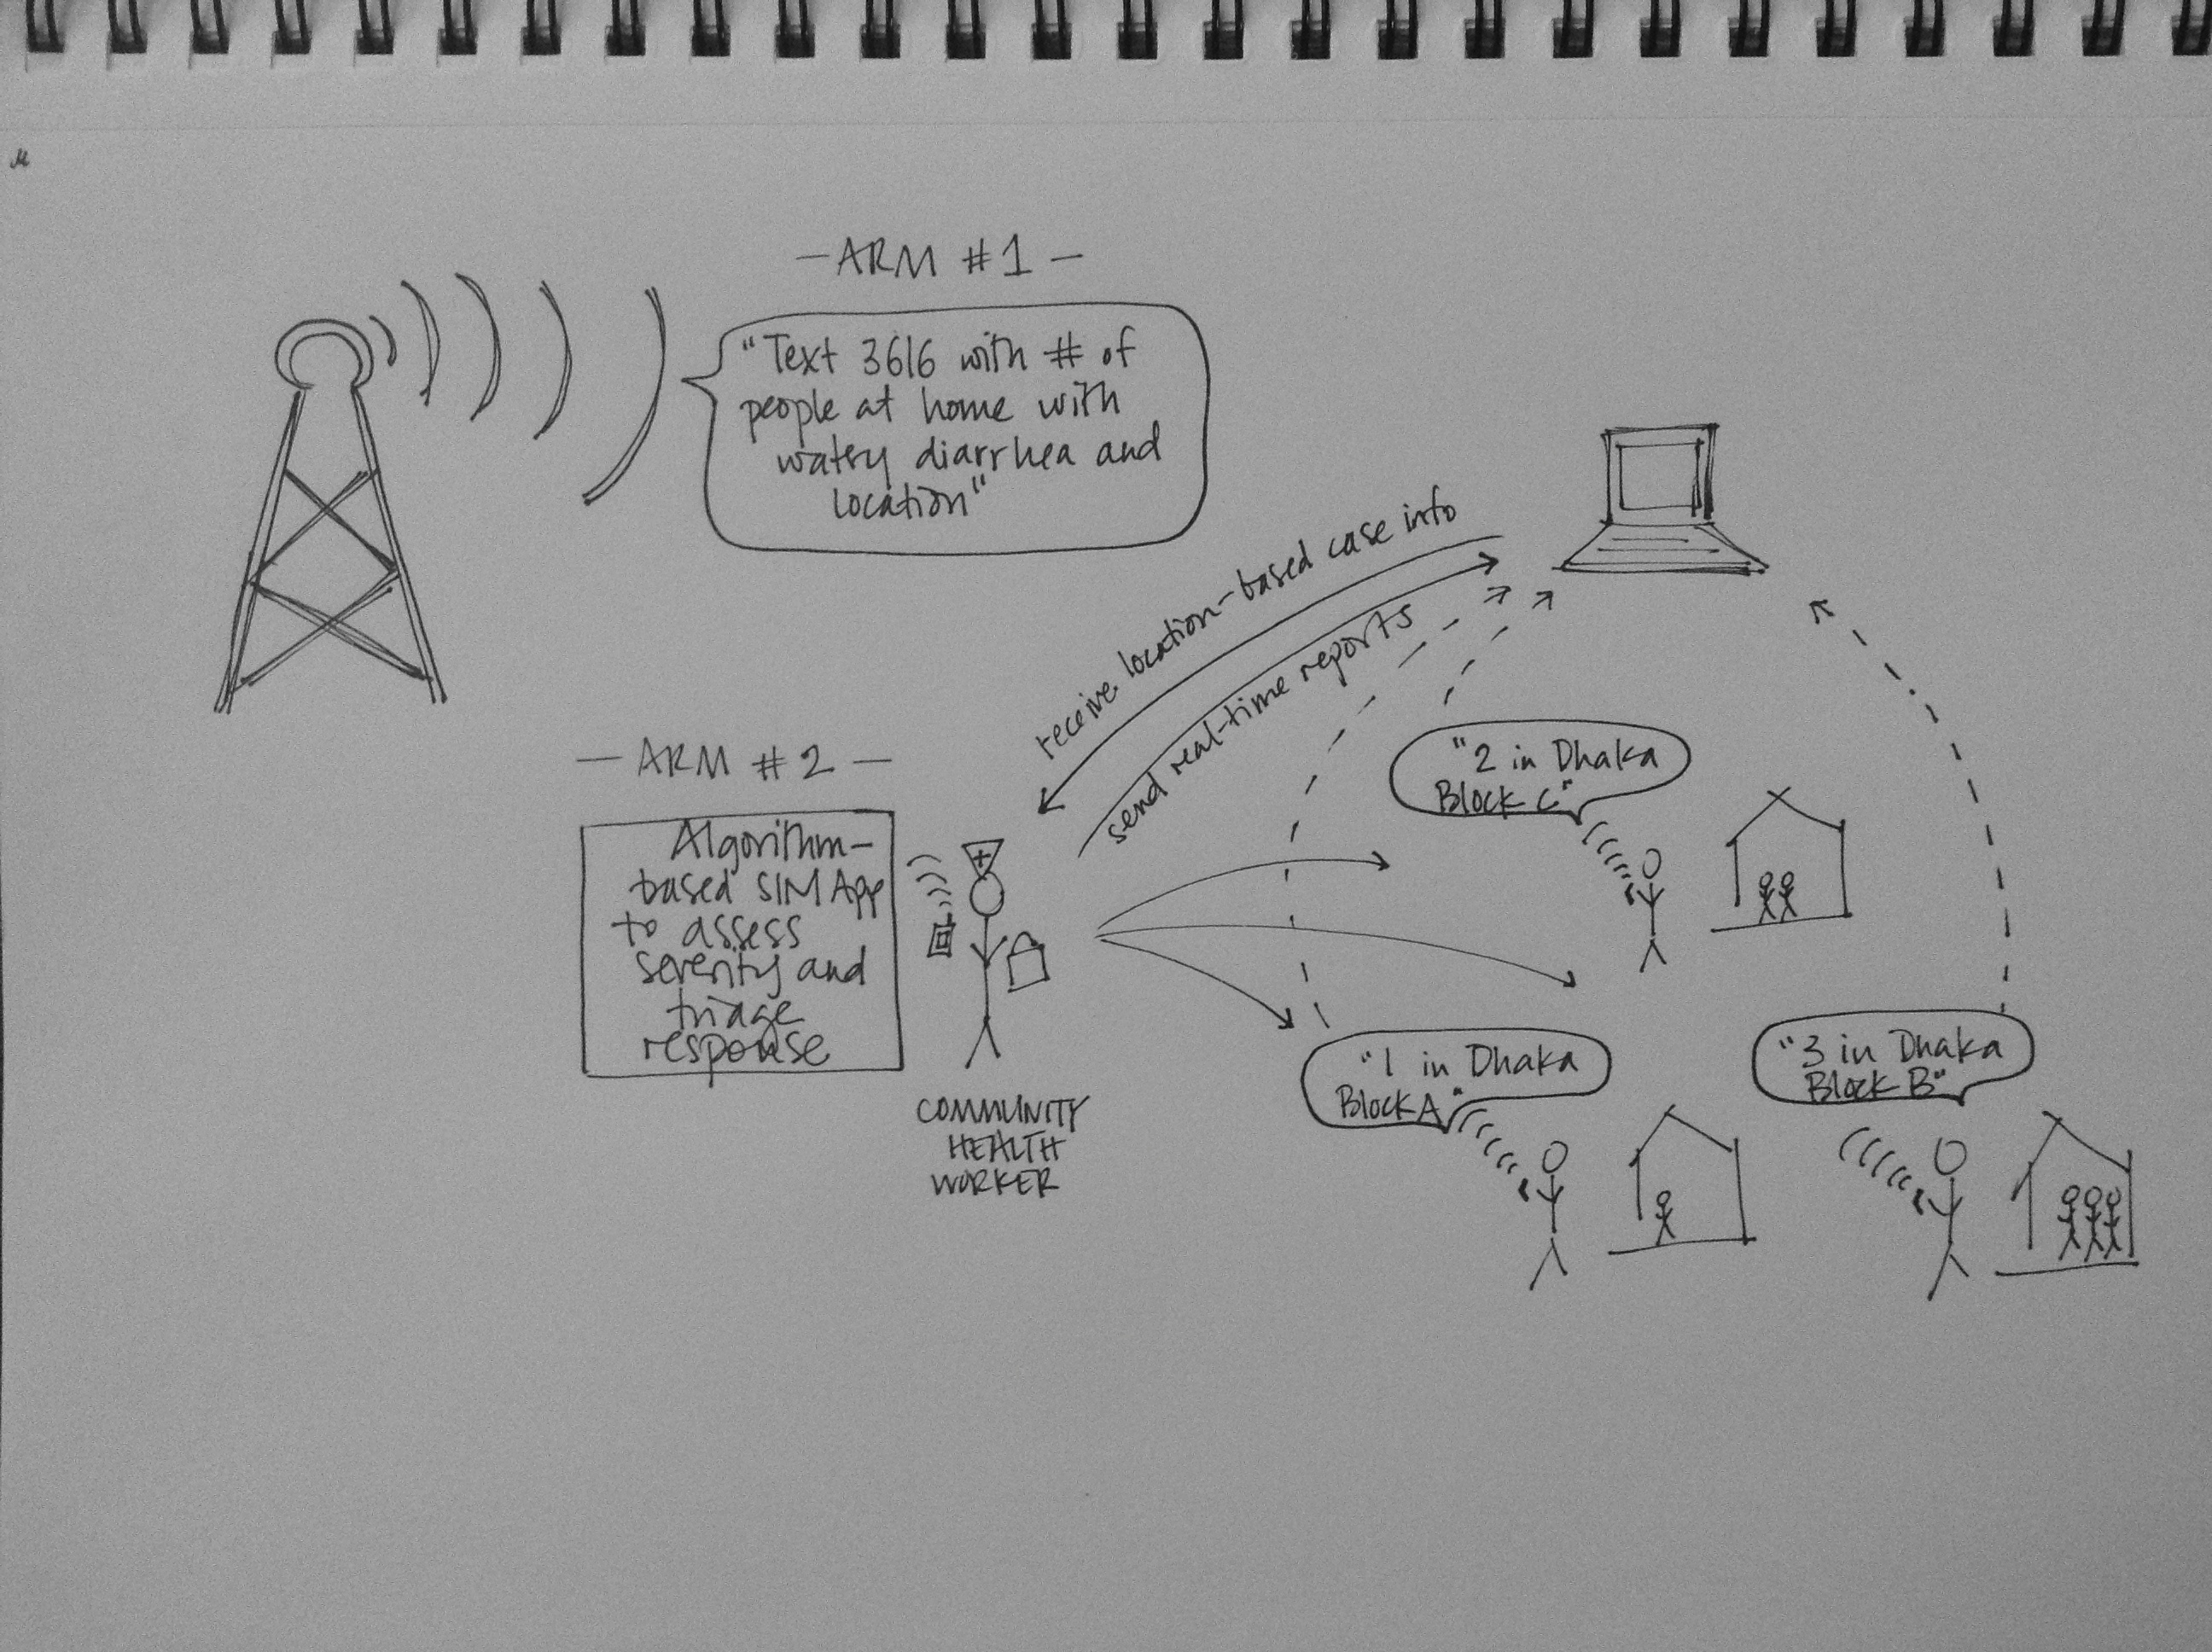 - ARM #1 -
"Text 3616 with # of
people at home with
watery diarrhea and
location"
receive location-based case info
send real-time reports
- ARM #2 -
Algorithm-
based SIM App
to assess
severity and
triage
response
COMMUNITY
HEALTH
WORKER
"2 in Dhaka
Block C"
"1 in Dhaka
Block A"
"3 in Dhaka
Block B"